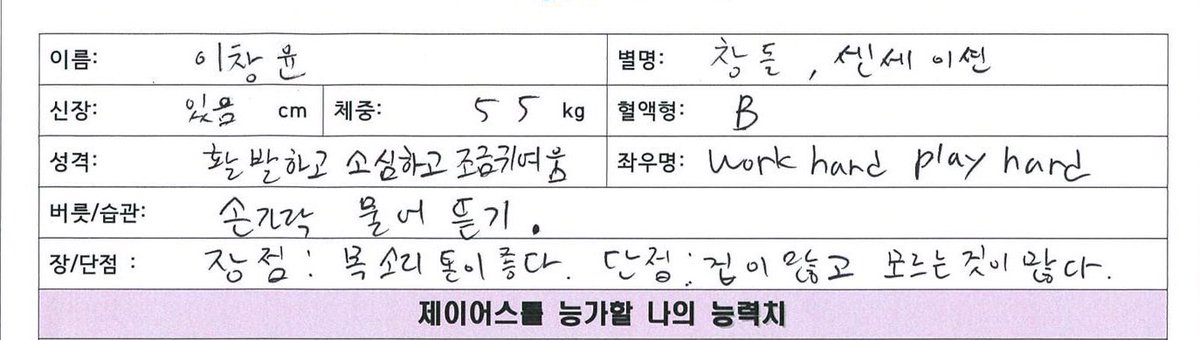 이름: 이창윤 별명: 창돌, 센세이션
신장: 있음 cm 체중: 55 kg 혈액형: B
성격: 활발하고 소심하고 조금귀여움 좌우명: work hard play hard
버릇/습관: 손가락 물어 뜯기.
장/단점 : 장점: 목소리 톤이 좋다. 단점: 겁이 많고 모르는 것이 많다.
제이어스를 능가할 나의 능력치